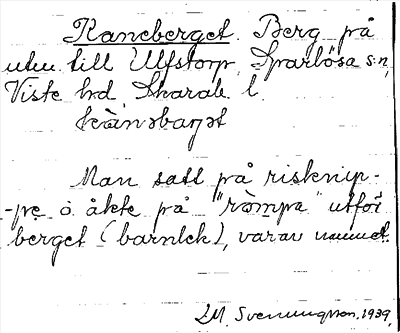 Kaneberget. Berg på
utm. till Ulfstorp, Sparlösa s:n,
Viste hd, Skarab. l.
Man satt på risknip-
-pe o åkte på "rampa" utför
berget (barnlek), varav namnet.
Svenungsson. 1939.